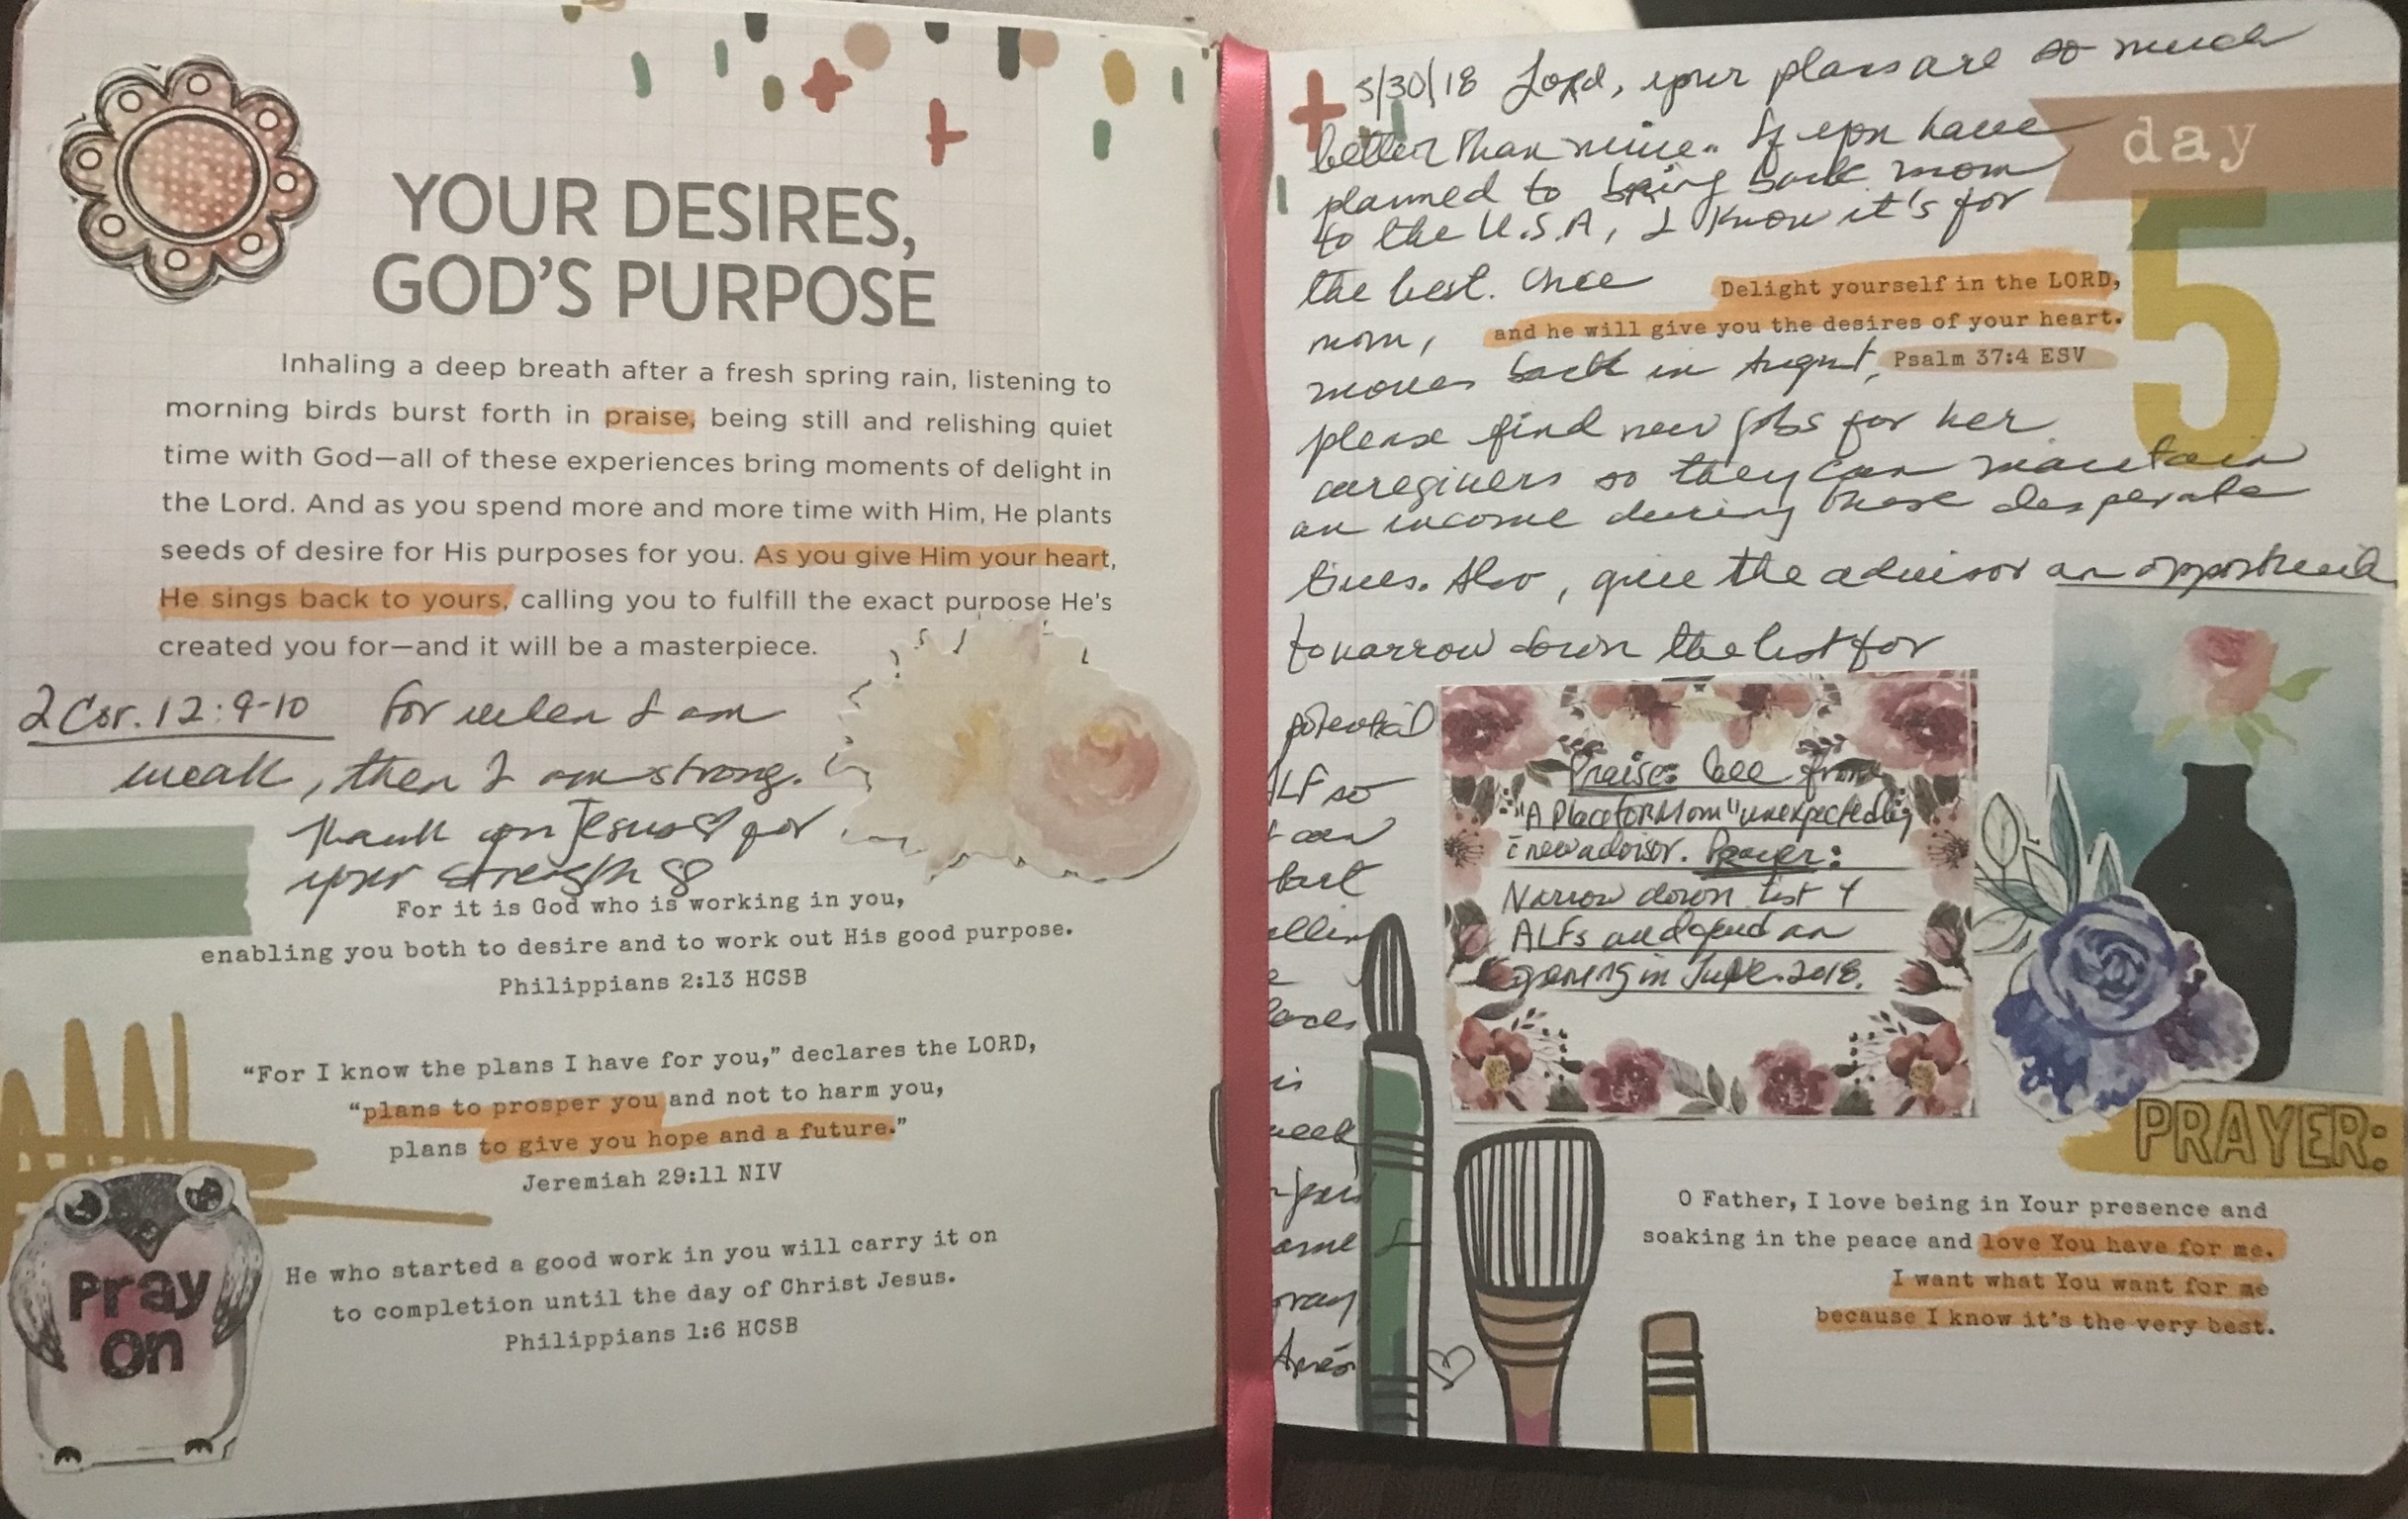 YOUR DESIRES,
GOD'S PURPOSE
Inhaling a deep breath after a fresh spring rain, listening to
morning birds burst forth in praise, being still and relishing quiet
time with God—all of these experiences bring moments of delight in
the Lord. And as you spend more and more time with Him, He plants
seeds of desire for His purposes for you. As you give Him your heart,
He sings back to yours, calling you to fulfill the exact purpose He's
created you for—and it will be a masterpiece.
2 Cor. 12:9-10 For when I am
weak, then I am strong.
Thank you Jesus♡ for
your strength ♡
For it is God who is working in you,
enabling you both to desire and to work out His good purpose.
Philippians 2:13 HCSB
"For I know the plans I have for you," declares the LORD,
"plans to prosper you and not to harm you,
plans to give you hope and a future."
Jeremiah 29:11 NIV
He who started a good work in you will carry it on
to completion until the day of Christ Jesus.
Philippians 1:6 HCSB
Pray
on
5/30/18 Lord, your plans are so much
better than mine. If you have
planned to bring back mom
to the U.S.A, I know it's for
the best. Once
mom,
moves back in August,
please find new jobs for her
caregivers so they can maintain
an income during these desperate
times. Also, give the advisor an
to narrow down the list for
potential
ALF so
can
start
week
pray
day
5
Delight yourself in the LORD,
and he will give you the desires of your heart.
Psalm 37:4 ESV
Praise: Call from
"A Place for Mom" unexpectedly
c̄ new advisor. Prayer:
Narrow down list of
ALFs and find an
opening in June 2018.
PRAYER:
O Father, I love being in Your presence and
soaking in the peace and love You have for me.
I want what You want for me
because I know it's the very best.